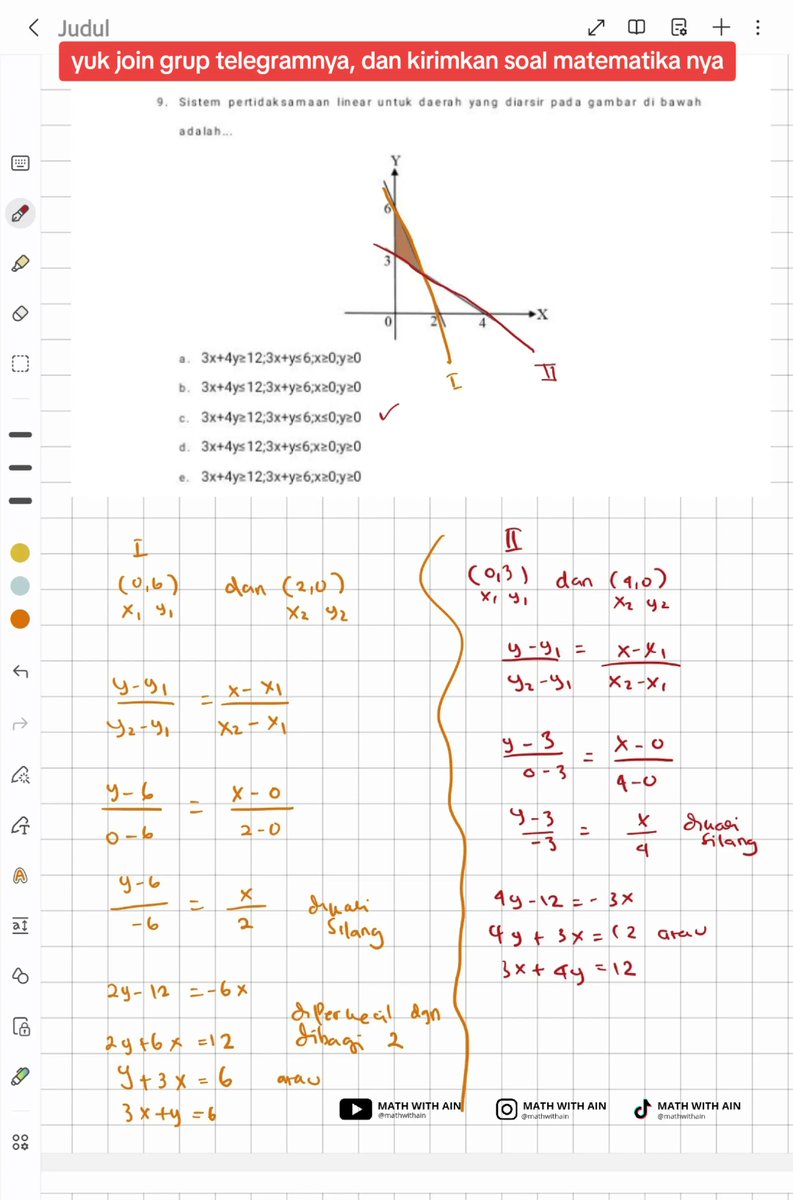 Judul
yuk join grup telegramnya, dan kirimkan soal matematika nya
9. Sistem pertidaksamaan linear untuk daerah yang diarsir pada gambar di bawah
adalah...
Y
6
3
0 2 4 X
I II
a. 3x+4y≥12;3x+y≤6;x≥0;y≥0
b. 3x+4y≤12;3x+y≥6;x≥0;y≥0
c. 3x+4y≥12;3x+y≤6;x≤0;y≥0 ✓
d. 3x+4y≤12;3x+y≤6;x≥0;y≥0
e. 3x+4y≥12;3x+y≥6;x≥0;y≥0
I
(0,6) dan (2,0)
x₁ y₁ x₂ y₂
y-y₁ / y₂-y₁ = x-x₁ / x₂-x₁
y-6 / 0-6 = x-0 / 2-0
y-6 / -6 = x / 2 dikali silang
2y-12 = -6x
2y+6x = 12 diperkecil dgn dibagi 2
y+3x = 6 atau
3x+y = 6
II
(0,3) dan (4,0)
x₁ y₁ x₂ y₂
y-y₁ / y₂-y₁ = x-x₁ / x₂-x₁
y-3 / 0-3 = x-0 / 4-0
y-3 / -3 = x / 4 dikali silang
4y-12 = -3x
4y+3x = 12 atau
3x+4y = 12
MATH WITH AIN MATH WITH AIN MATH WITH AIN
@mathwithain @mathwithain @mathwithain